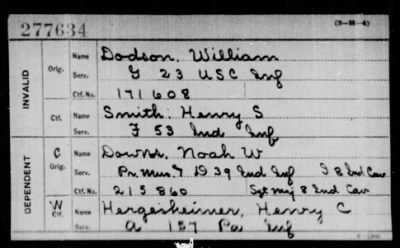 277634 (3-M-4)
INVALID
Orig. Name Dodson, William
Serv. G 23 USC Inf
Ctf. No. 171608
Ctf. Name Smith, Henry S
Serv. F 53 Ind Inf
DEPENDENT
C Orig. Name Downs, Noah W
Serv. Pr. Mus. 7 D 39 Ind Inf I 8 Ind Cav
Ctf. No. 215860 Sgt Mj 8 Ind Cav
W Ctf. Name Hergesheimer, Henry C
Serv. A 157 Pa Inf